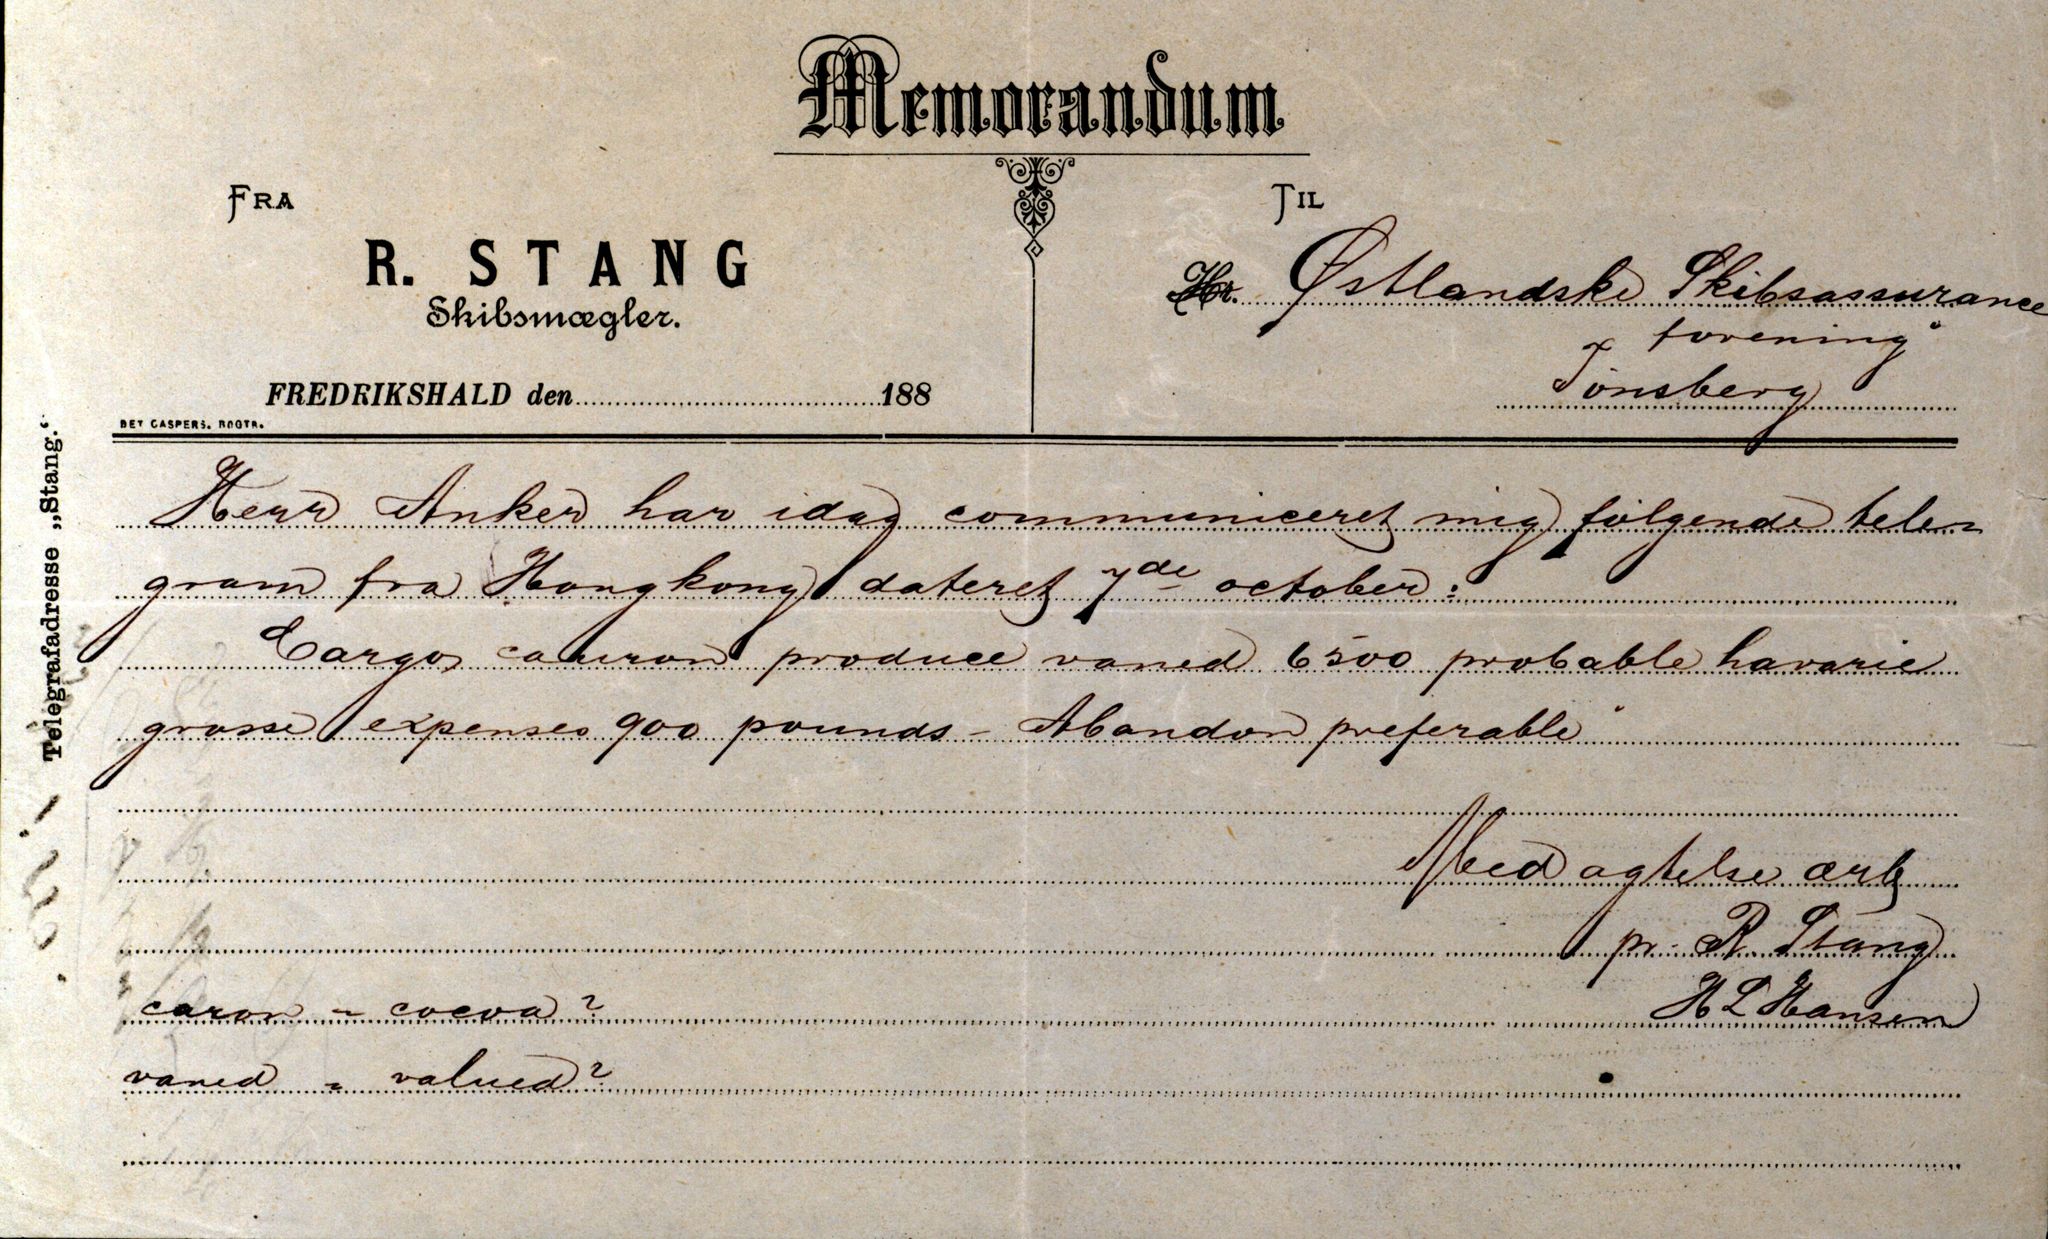 Memorandum
FRA
TIL
R. STANG
Skibsmægler.
Hr. Østlandske Skibsassurance
forening"
Tønsberg
FREDRIKSHALD den 188
DET CASPERS. BOGTR.
Telegrafadresse „Stang."
Herr Anker har idag communiceret mig følgende tele-
gram fra Hongkong dateret 7de october:
Cargo produce vaned 6500 probable havarie
grosse expenses 900 pounds – Abandon preferable"
Med agtelse ærb
pr. R. Stang
H L Hansen
caron = cocoa?
vaned = valued?